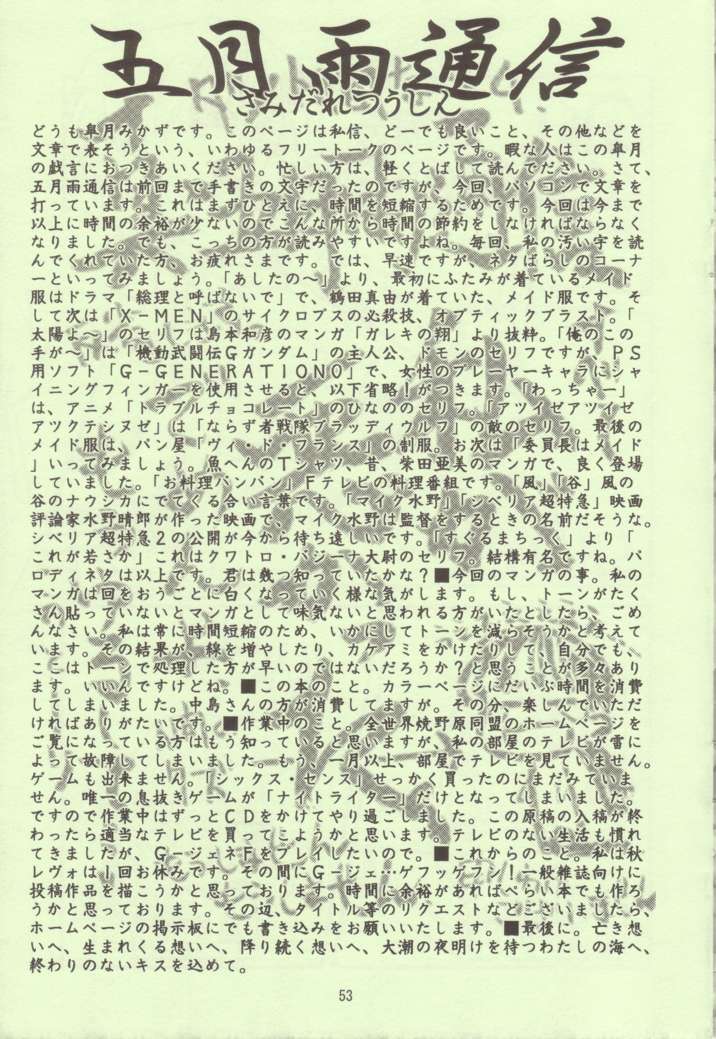 五月雨通信
さみだれつうしん
どうも皐月みかずです。このページは私信、どーでも良いこと、その他などを
文章で表そうという、いわゆるフリートークのページです。暇な人はこの皐月
の戯言におつきあいください。忙しい方は、軽くとばして読んでださい。さて、
五月雨通信は前回まで手書きの文字だったのですが、今回、パソコンで文章を
打っています。これはまずひとえに、時間を短縮するためです。今回は今まで
以上に時間の余裕が少ないのでこんな所から時間の節約をしなければならなく
なりました。でも、こっちの方が読みやすいですよね。毎回、私の汚い字を読
んでくれていた方、お疲れさまです。では、早速ですが、ネタばらしのコーナ
ーといってみましょう。「あしたのへ」より、最初にふたみが着ているメイド
服はドラマ「総理と呼ばないで」で、鶴田真由が着ていた、メイド服です。そ
して次は「X-MEN」のサイクロプスの必殺技、オプティックブラスト。「
太陽よ~」のセリフは島本和彦のマンガ「ガレキの翔」より抜粋。「俺のこの
手が~」は「機動武闘伝Gガンダム」の主人公、ドモンのセリフですが、PS
用ソフト「G-GENERATION0」で、女性のプレーヤーキャラにシャ
イニングフィンガーを使用させると、以下省略!がつきます。「わっちゃー」
は、アニメ「トラブルチョコレート」のひなののセリフ。「アツイゼアツイゼ
アツクテシヌゼ」は「ならず者戦隊ブラッディウルフ」の敵のセリフ。最後の
メイド服は、パン屋「ヴィ・ド・フランス」の制服。お次は「委員長はメイド
」いってみましょう。魚へんのTシャツ、昔、柴田亜美のマンガで、良く登場
していました。「お料理バンバン」Fテレビの料理番組です。「風」「谷」風の
谷のナウシカにでてくる合い言葉です。「マイク水野」「シベリア超特急」映画
評論家水野晴郎が作った映画で、マイク水野は監督をするときの名前だそうな。
シベリア超特急2の公開が今から待ち遠しいです。「すぐるまちっく」より「
これが若さか」これはクワトロ・バジーナ大尉のセリフ。結構有名ですね。パ
ロディネタは以上です。君は幾つ知っていたかな?■今回のマンガの事。私の
マンガは回をおうごとに白くなっていく様な気がします。もし、トーンがたく
さん貼っていないとマンガとして味気ないと思われる方がいたとしたら、ごめ
んなさい。私は常に時間短縮のため、いかにしてトーンを減らそうかと考えて
います。その結果が、線を増やしたり、カケアミをかけたりして、自分でも、
ここはトーンで処理した方が早いのではないだろうか?と思うことが多々あり
ます。いいんですけどね。■この本のこと。カラーページにだいぶ時間を消費
してしまいました。中島さんの方が消費してますが。その分、楽しんでいただ
ければありがたいです。■作業中のこと。全世界焼野原同盟のホームページを
ご覧になっている方はもう知っていると思いますが、私の部屋のテレビが雷に
よって故障してしまいました。もう、一月以上、部屋でテレビを見ていません。
ゲームも出来ません。「シックス・センス」せっかく買ったのにまだみていま
せん。唯一の息抜きゲームが「ナイトライター」だけとなってしまいました。
ですので作業中はずっとCDをかけてやり過ごしました。この原稿の入稿が終
わったら適当なテレビを買ってこようかと思います。テレビのない生活も慣れ
てきましたが、G-ジェネFをプレイしたいので。■これからのこと。私は秋
レヴォは1回お休みです。その間にG-ジェ…ゲフッゲフン!一般雑誌向けに
投稿作品を描こうかと思っております。時間に余裕があればぺらい本でも作ろ
うかと思っております。その辺、タイトル等のリクエストなどございましたら、
ホームページの掲示板にでも書き込みをお願いいたします。■最後に。亡き想
いへ、生まれくる想いへ、降り続く想いへ、大潮の夜明けを待つわたしの海へ、
終わりのないキスを込めて。
53